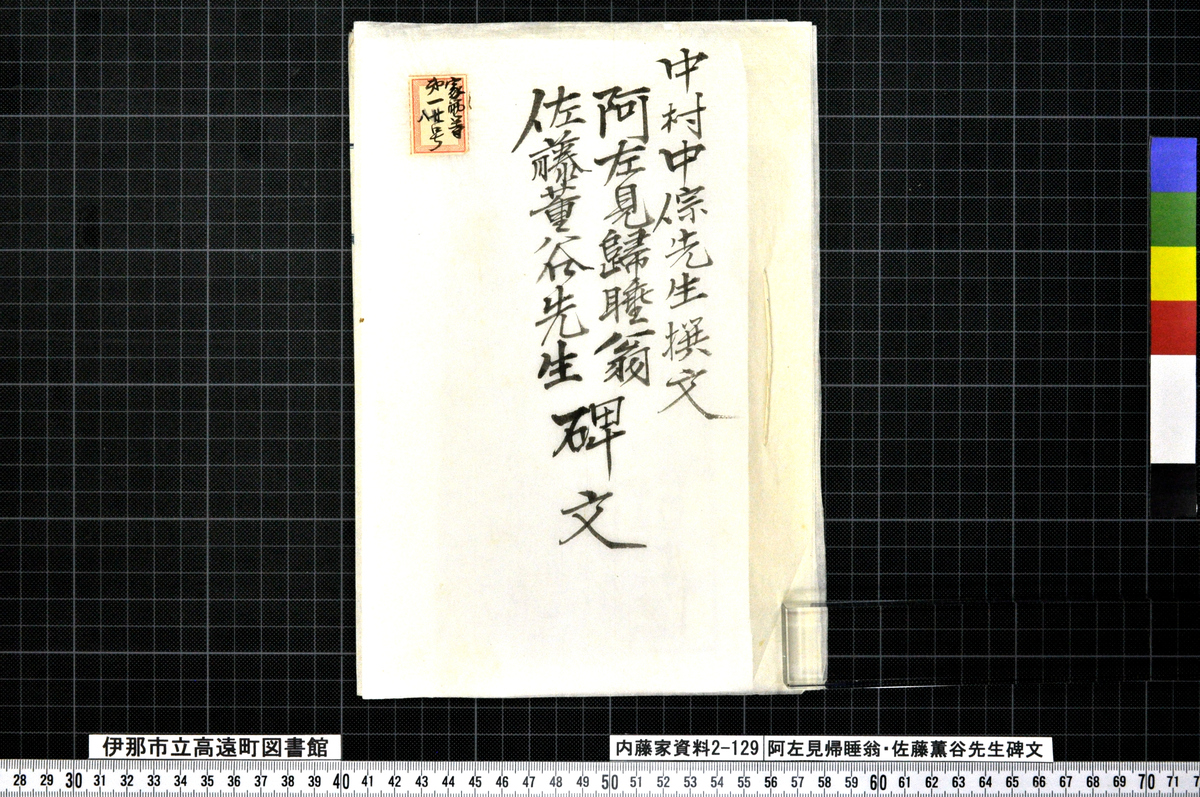 中村中倧先生撰文
阿左見歸睡翁
佐藤董谷先生
碑文
伊那市立高遠町図書館
内藤家資料2-129
阿左見帰睡翁・佐藤薫谷先生碑文
28 29 30 31 32 33 34 35 36 37 38 39 40 41 42 43 44 45 46 47 48 49 50 51 52 53 54 55 56 57 58 59 60 61 62 63 64 65 66 67 68 69 70 71